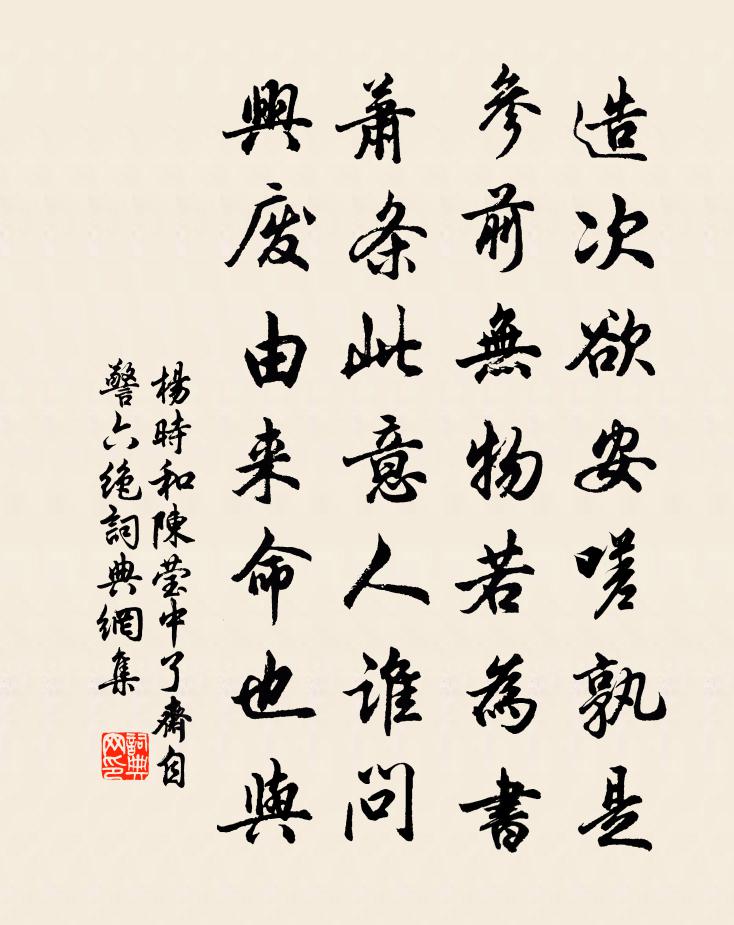 造次欲安嗟孰是
參前無物若為書
蕭条此意人誰問
興廢由来命也與
楊時和陳瑩中了齋自
警六絶詞典網集
詞典网印